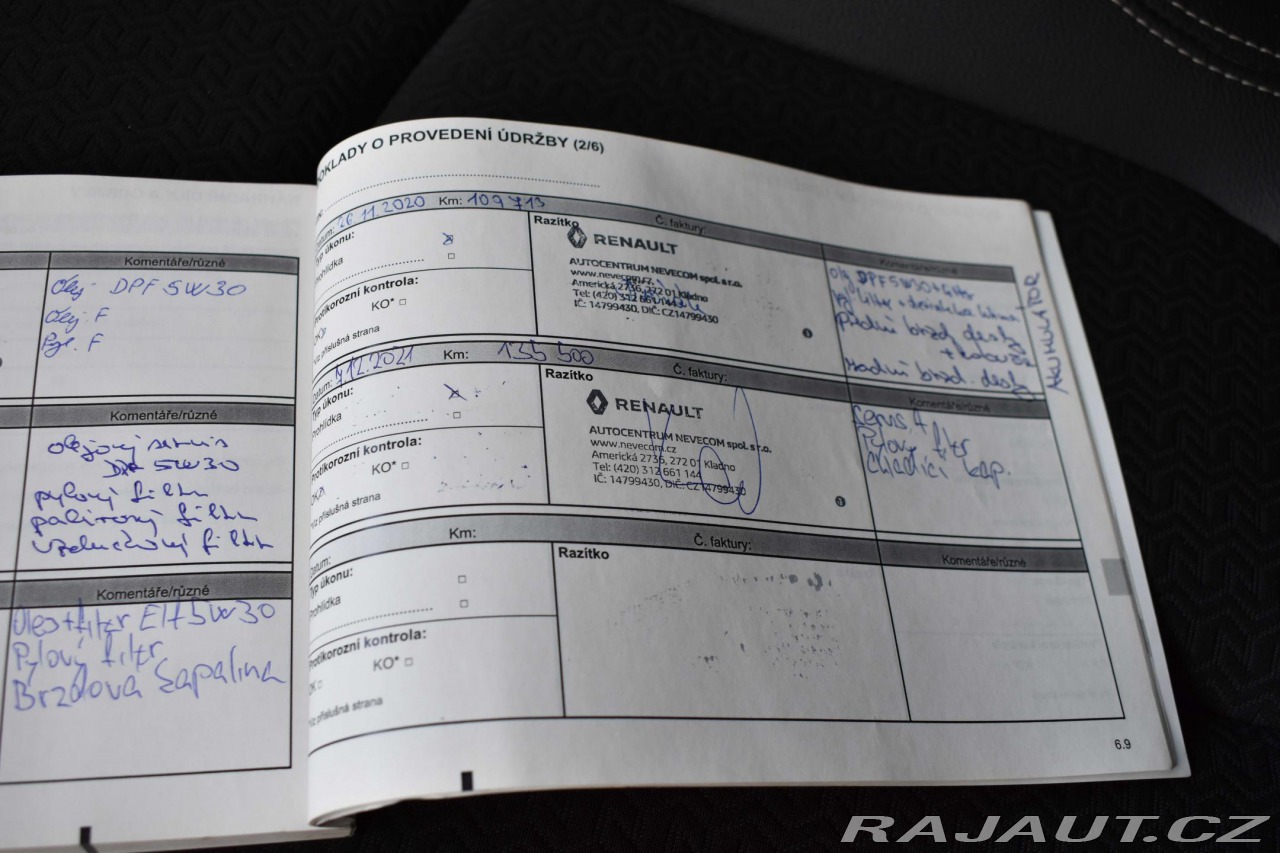 Komentáře/různé
Olej DPF 5W30
Olej. F
Pyl. F
Komentáře/různé
olejový servis
DPF 5W30
pylový filtr
palivový filtr
vzduchový filtr
Komentáře/různé
Olej+filtr Elf 5W30
Pylový filtr
Brzdova kapalina
DOKLADY O PROVEDENÍ ÚDRŽBY (2/6)
Datum: 26 11.2020 Km: 109 713 Č. faktury:
Typ úkonu:
Prohlídka
Protikorozní kontrola:
KO* □
OK
viz příslušná strana
Razítko
RENAULT
AUTOCENTRUM NEVECOM spol. s r.o.
www.nevecom.cz
Americká 2736, 272 01 Kladno
Tel: (420) 312 661 144
IČ: 14799430, DIČ: CZ14799430
Komentáře/různé
olej DPF 5W30+filtr
přední brzd desty
+ kotouče
zadní brzd. desty
AKUMULÁTOR
Datum: 12.2021 Km: 135 500 Č. faktury:
Typ úkonu:
Prohlídka
Protikorozní kontrola:
KO* □
OK
viz příslušná strana
Razítko
RENAULT
AUTOCENTRUM NEVECOM spol. s r.o.
www.nevecom.cz
Americká 2736, 272 01 Kladno
Tel: (420) 312 661 144
IČ: 14799430, DIČ: CZ14799430
Komentáře/různé
Servis A
Pylový filtr
Chladící kap.
Datum: Km: Č. faktury:
Typ úkonu:
Prohlídka
Protikorozní kontrola:
KO* □
OK □
viz příslušná strana
Razítko
Komentáře/různé
6.9
RAJAUT.CZ